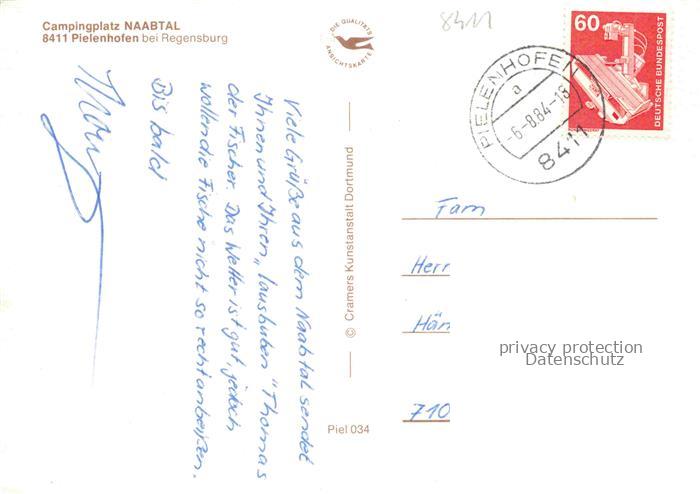 Campingplatz NAABTAL
8411 Pielenhofen bei Regensburg
DIE QUALITÄTS
ANSICHTSKARTE
8411
60
DEUTSCHE BUNDESPOST
PIELENHOFEN
a
-6-8.84-18
8411
Viele Grüße aus dem Naabtal sendet
Ihnen und Ihren "lausbuben" Thomas
der Fischer. Das Wetter ist gut, jedoch
wollen die Fische nicht so recht anbeißen.
Bis bald
© Cramers Kunstanstalt Dortmund
Piel 034
Fam
Herr
Hän
710
privacy protection
Datenschutz